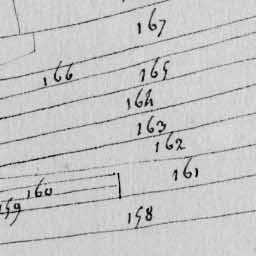 167
166
165
164
163
162
161
160
159
158